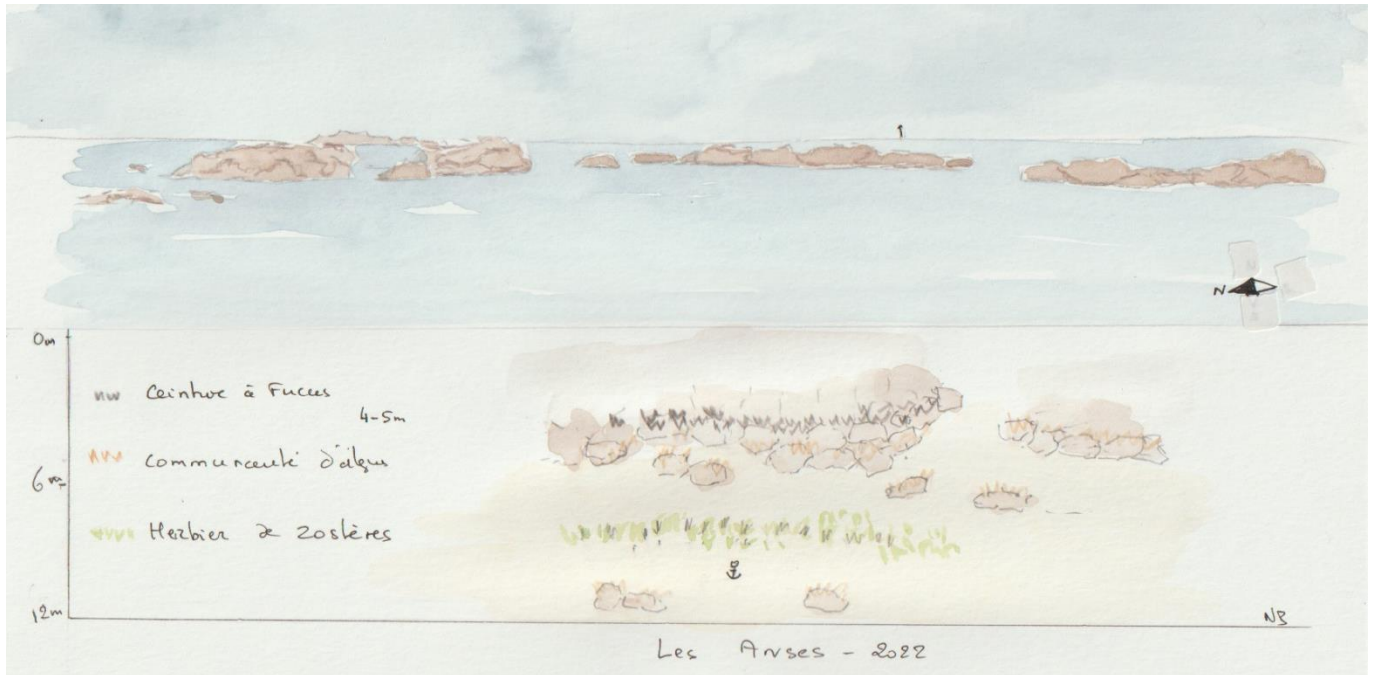 N
0m
Ceinture à Fucus
4-5m
Communauté d'algues
6m
Herbier de zostères
12m
NB
Les Anses - 2022